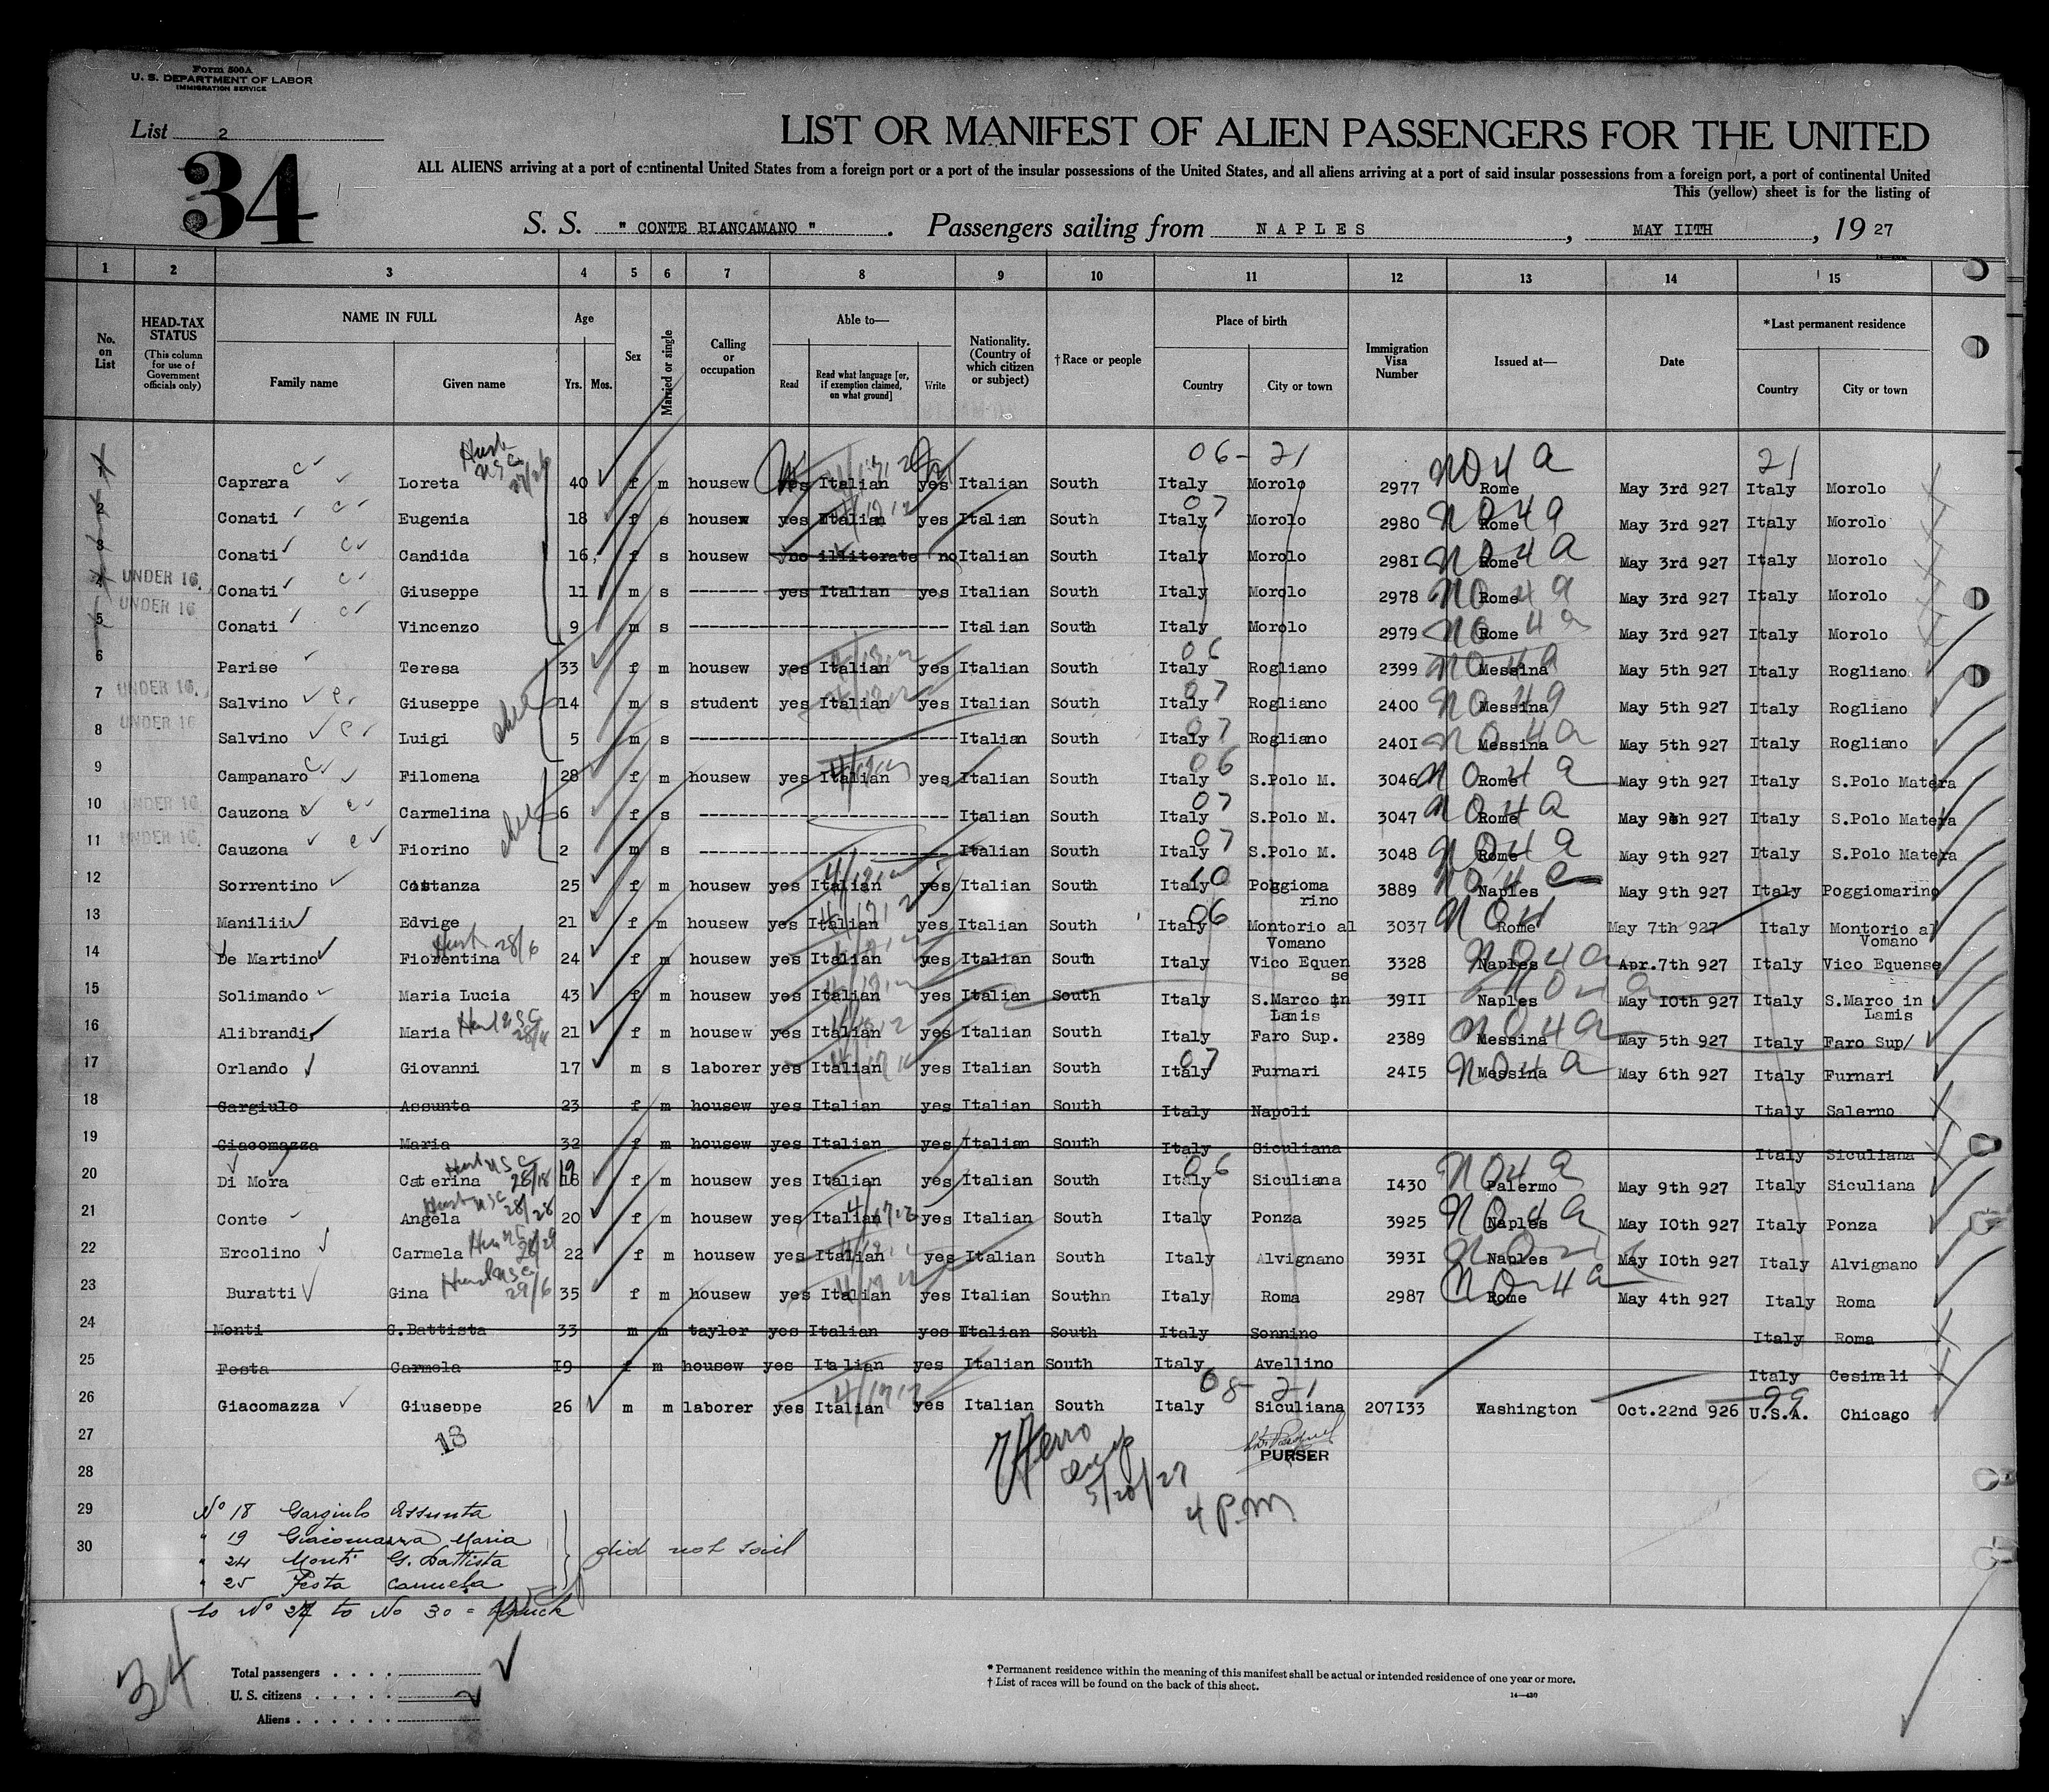 Form 500A
U. S. DEPARTMENT OF LABOR
IMMIGRATION SERVICE
List 2
34
LIST OR MANIFEST OF ALIEN PASSENGERS FOR THE UNITED
ALL ALIENS arriving at a port of continental United States from a foreign port or a port of the insular possessions of the United States, and all aliens arriving at a port of said insular possessions from a foreign port, a port of continental United
This (yellow) sheet is for the listing of
S. S. " CONTE BIANCAMANO " . Passengers sailing from NAPLES , MAY IITH , 19 27
1 2 3 4 5 6 7 8 9 10 11 12 13 14 15
No. on List
HEAD-TAX STATUS (This column for use of Government officials only)
NAME IN FULL
Family name Given name
Age Yrs. Mos.
Sex
Married or single
Calling or occupation
Able to— Read Read what language [or, if exemption claimed, on what ground] Write
Nationality. (Country of which citizen or subject)
†Race or people
Place of birth Country City or town
Immigration Visa Number
Issued at—
Date
*Last permanent residence Country City or town
06 - 21 21
1 Caprara Loreta 40 f m housew yes Italian yes Italian South Italy Morolo 2977 Rome May 3rd 927 Italy Morolo
2 Conati Eugenia 18 f s housew yes Italian yes Italian South Italy Morolo 2980 Rome May 3rd 927 Italy Morolo
3 Conati Candida 16 f s housew no illiterate no Italian South Italy Morolo 298I Rome May 3rd 927 Italy Morolo
4 UNDER 16. Conati Giuseppe 11 m s ------- yes Italian yes Italian South Italy Morolo 2978 Rome May 3rd 927 Italy Morolo
5 UNDER 16 Conati Vincenzo 9 m s ------- Italian South Italy Morolo 2979 Rome May 3rd 927 Italy Morolo
6 Parise Teresa 33 f m housew yes Italian yes Italian South Italy Rogliano 2399 Messina May 5th 927 Italy Rogliano
7 UNDER 16. Salvino Giuseppe 14 m s student yes Italian yes Italian South Italy Rogliano 2400 Messina May 5th 927 Italy Rogliano
8 UNDER 16 Salvino Luigi 5 m s ------- Italian South Italy Rogliano 240I Messina May 5th 927 Italy Rogliano
9 Campanaro Filomena 28 f m housew yes Italian yes Italian South Italy S.Polo M. 3046 Rome May 9th 927 Italy S.Polo Matera
10 UNDER 16. Cauzona Carmelina 6 f s ------- Italian South Italy S.Polo M. 3047 Rome May 9th 927 Italy S.Polo Matera
11 UNDER 16. Cauzona Fiorino 2 m s ------- Italian South Italy S.Polo M. 3048 Rome May 9th 927 Italy S.Polo Matera
12 Sorrentino Costanza 25 f m housew yes Italian yes Italian South Italy Poggioma rino 3889 Naples May 9th 927 Italy Poggiomarino
13 Manilii Edvige 21 f m housew yes Italian yes Italian South Italy Montorio al Vomano 3037 Rome May 7th 927 Italy Montorio al Vomano
14 De Martino Fiorentina 24 f m housew yes Italian yes Italian South Italy Vico Equen se 3328 Naples Apr.7th 927 Italy Vico Equense
15 Solimando Maria Lucia 43 f m housew yes Italian yes Italian South Italy S.Marco in Lamis 39II Naples May I0th 927 Italy S.Marco in Lamis
16 Alibrandi Maria 21 f m housew yes Italian yes Italian South Italy Faro Sup. 2389 Messina May 5th 927 Italy Faro Sup/
17 Orlando Giovanni 17 m s laborer yes Italian yes Italian South Italy Furnari 24I5 Messina May 6th 927 Italy Furnari
18 Gargiulo Assunta 23 f m housew yes Italian yes Italian South Italy Napoli Italy Salerno
19 Giacomazza Maria 32 f m housew yes Italian yes Italian South Italy Siculiana Italy Siculiana
20 Di Mora Caterina 18 19 f m housew yes Italian yes Italian South Italy Siculiana I430 Palermo May 9th 927 Italy Siculiana
21 Conte Angela 20 f m housew yes Italian yes Italian South Italy Ponza 3925 Naples May I0th 927 Italy Ponza
22 Ercolino Carmela 22 f m housew yes Italian yes Italian South Italy Alvignano 393I Naples May I0th 927 Italy Alvignano
23 Buratti Gina 35 f m housew yes Italian yes Italian Southn Italy Roma 2987 Rome May 4th 927 Italy Roma
24 Monti G.Battista 33 m m taylor yes Italian yes Italian South Italy Sonnino Italy Roma
25 Festa Carmela I9 f m housew yes Italian yes Italian South Italy Avellino Italy Cesinali
08 - 21 99
26 Giacomazza Giuseppe 26 m m laborer yes Italian yes Italian South Italy Siculiana 207I33 Washington Oct.22nd 926 U.S.A. Chicago
27 18 PURSER
28 5/20/27
29 No 18 Gargiulo Assunta 4 P.M
" 19 Giacomazza Maria
30 " 24 Monti G. Battista did not sail
" 25 Festa Carmela
to No 27 to No 30 =
34
Total passengers
U. S. citizens
Aliens
* Permanent residence within the meaning of this manifest shall be actual or intended residence of one year or more.
† List of races will be found on the back of this sheet.
14—430